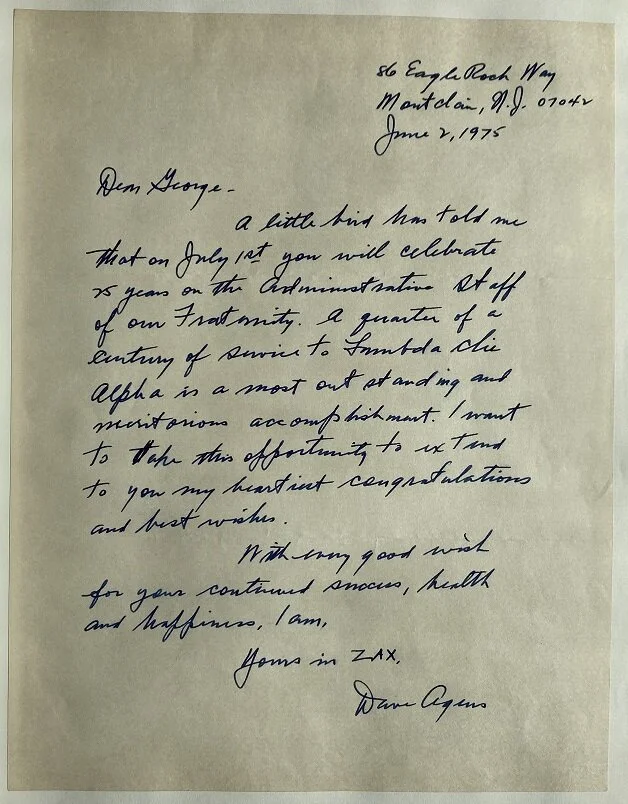 86 Eagle Rock Way
Montclair, N.J. 07042
June 2, 1975
Dear George -
A little bird has told me
that on July 1st you will celebrate
25 years on the Administrative Staff
of our Fraternity. A quarter of a
century of service to Lambda Chi
Alpha is a most outstanding and
meritorious accomplishment. I want
to take this opportunity to extend
to you my heartiest congratulations
and best wishes.
With every good wish
for your continued success, health
and happiness, I am,
Yours in ZAX,
Dave Agens